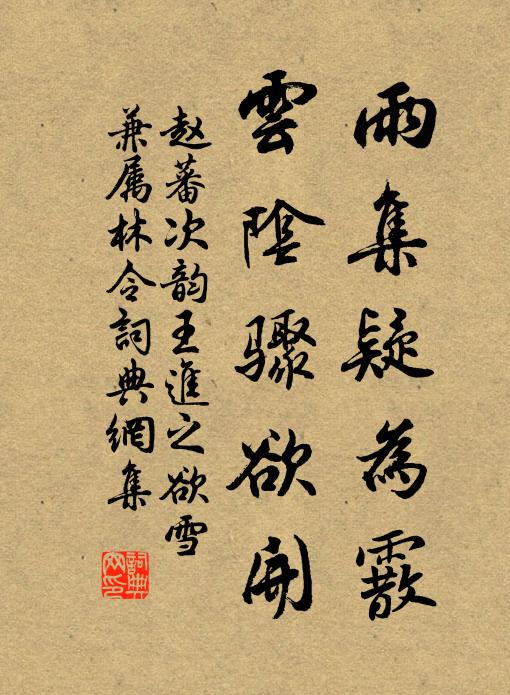 雨集疑為霰
雲陰驟欲開
赵蕃次韵王進之欲雪
兼属林令詞典網集
詞典網印